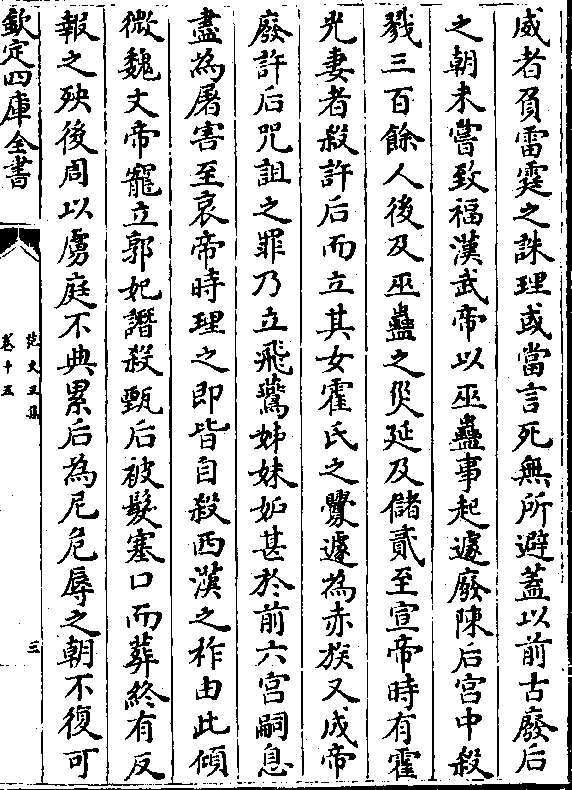 威者負雷霆之誅理或當言死無所避蓋以前古廢后
之朝未嘗致福漢武帝以巫蠱事起遽廢陳后宮中殺
戮三百餘人後及巫蠱之災延及儲貳至宣帝時有霍
光妻者殺許后而立其女霍氏之釁遽為赤族又成帝
廢許后咒詛之罪乃立飛鷰姊妹妬甚於前六宮嗣息
盡為屠害至哀帝時理之即皆自殺西漢之祚由此傾
微魏文帝寵立郭妃譖殺甄后被髮塞口而葬終有反
報之殃後周以虜庭不典累后為尼危辱之朝不復可
欽定四庫全書
范文正集
卷十五
三